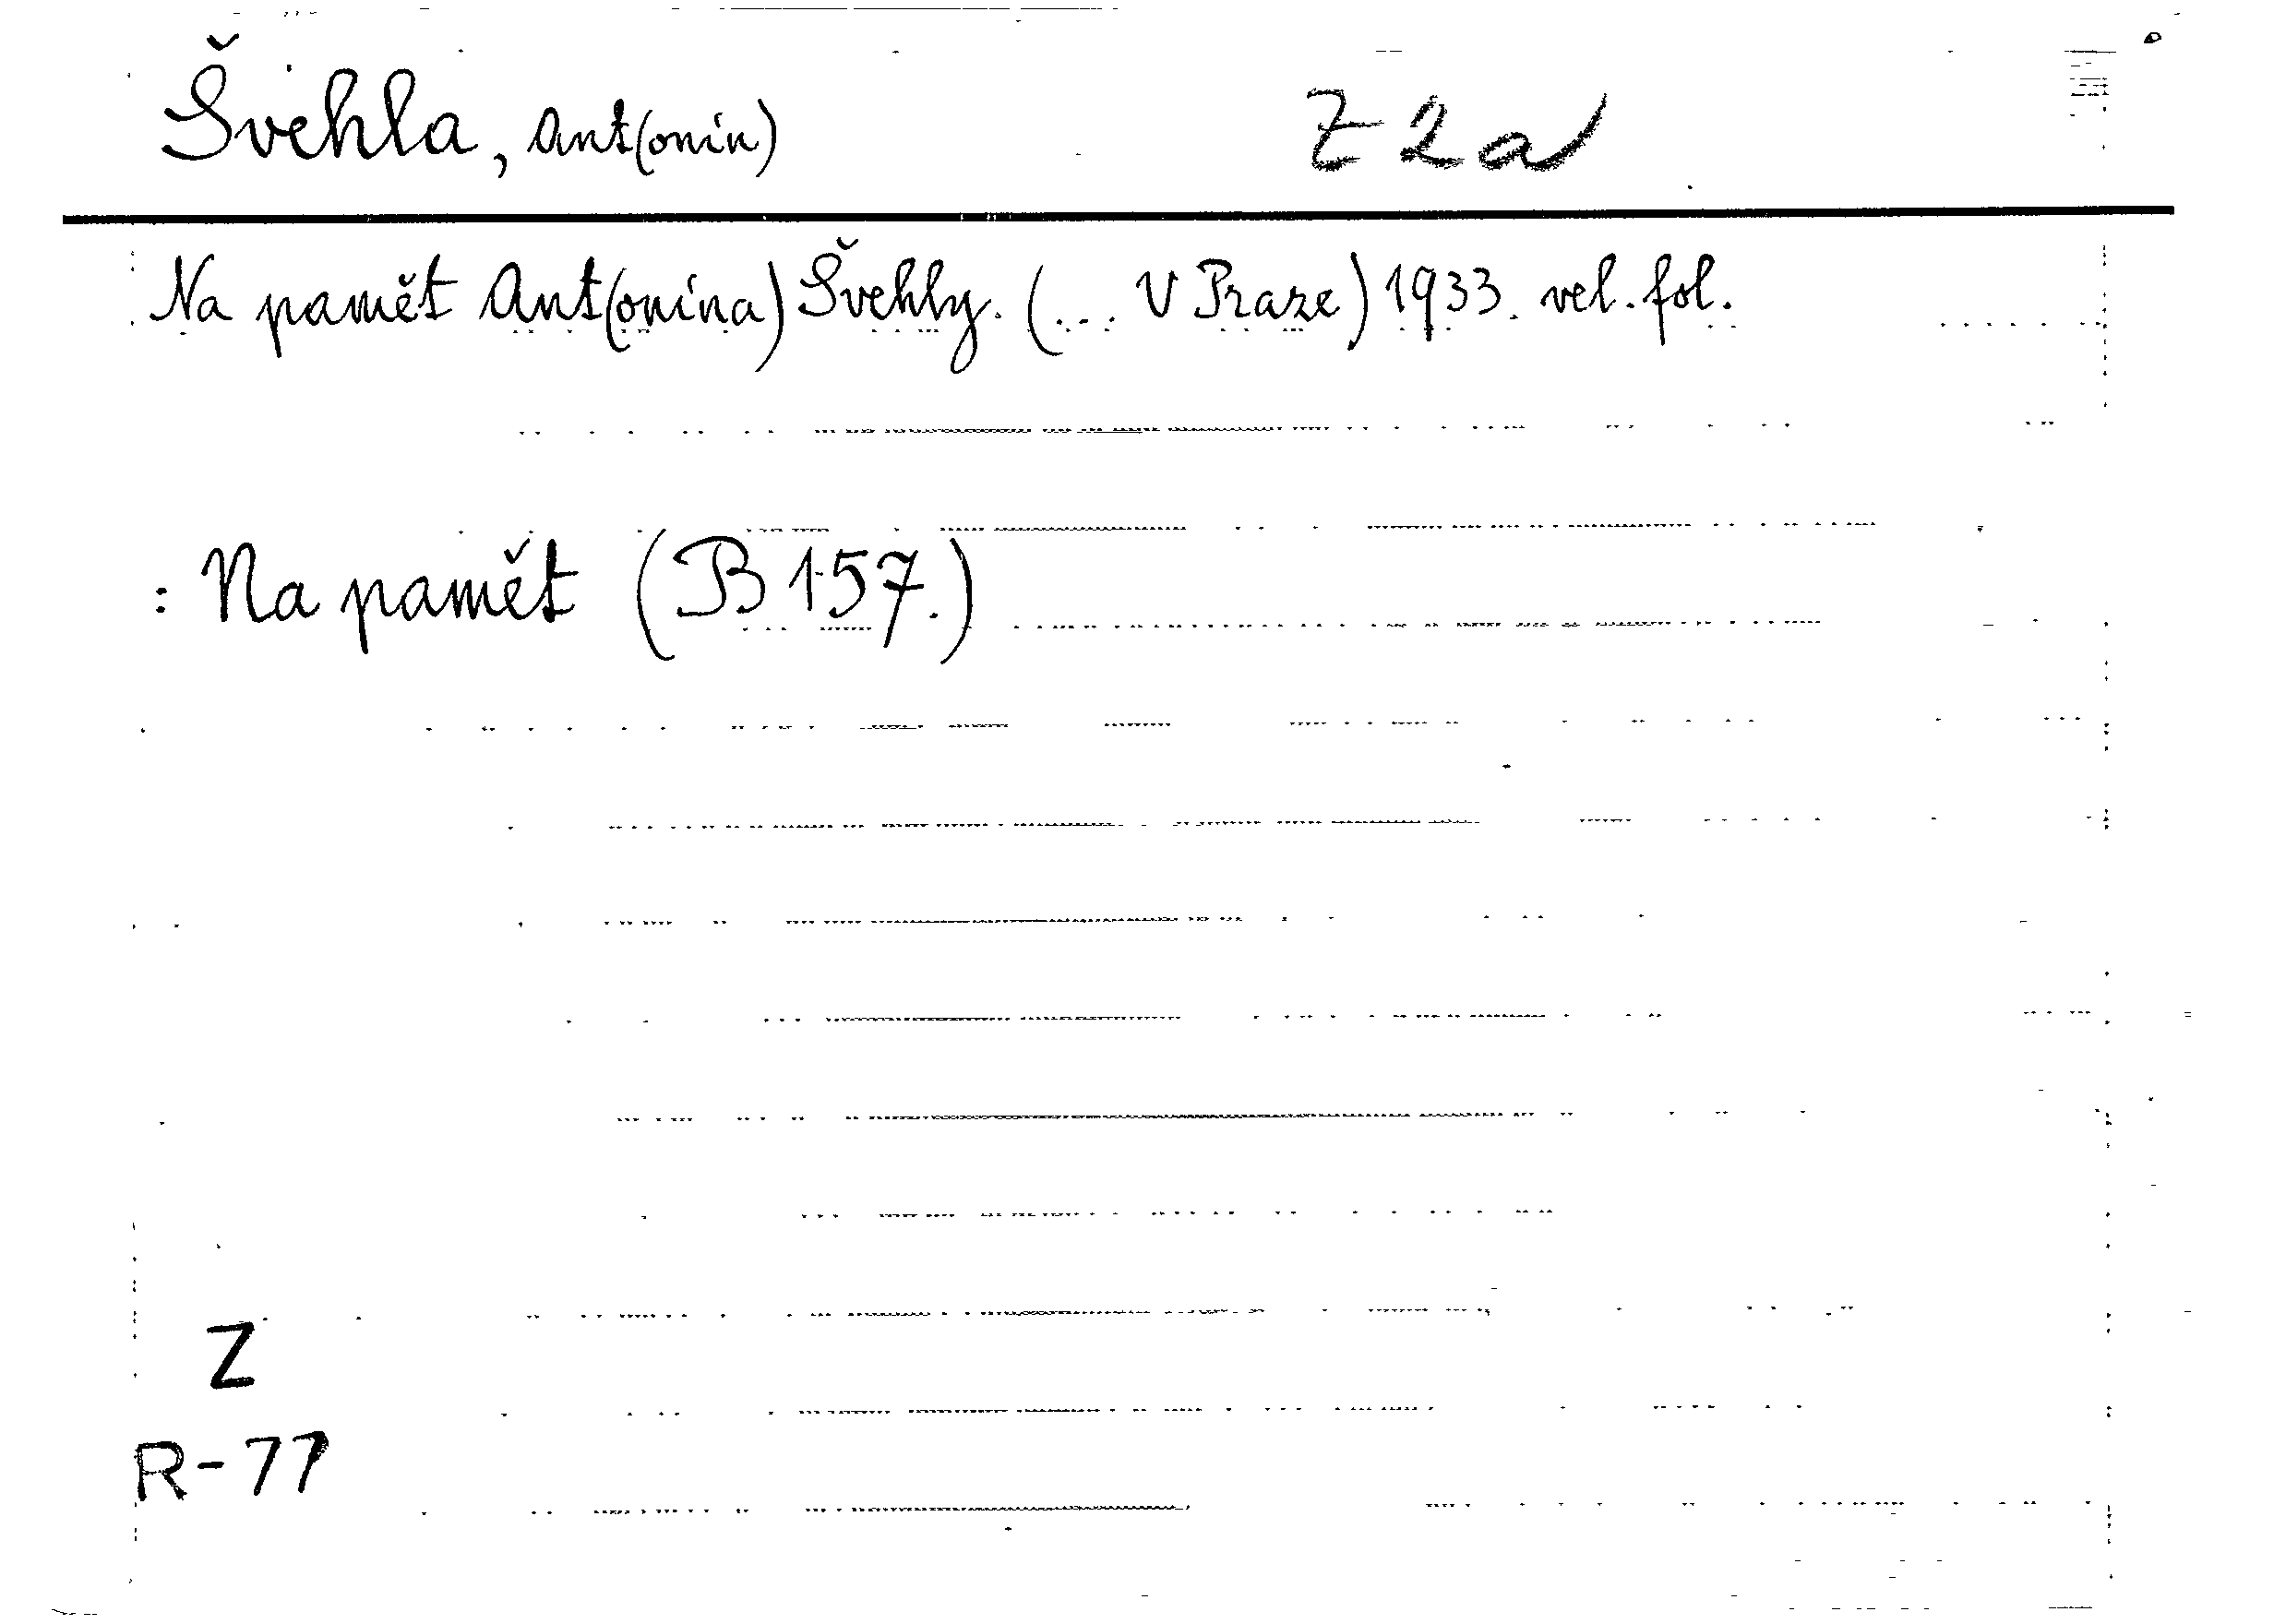 Švehla, Ant(onín) Z 2 a
Na pamět Ant(onína) Švehly. (... V Praze) 1933. vel. fol.
: Na pamět (B 157.)
Z
R-77